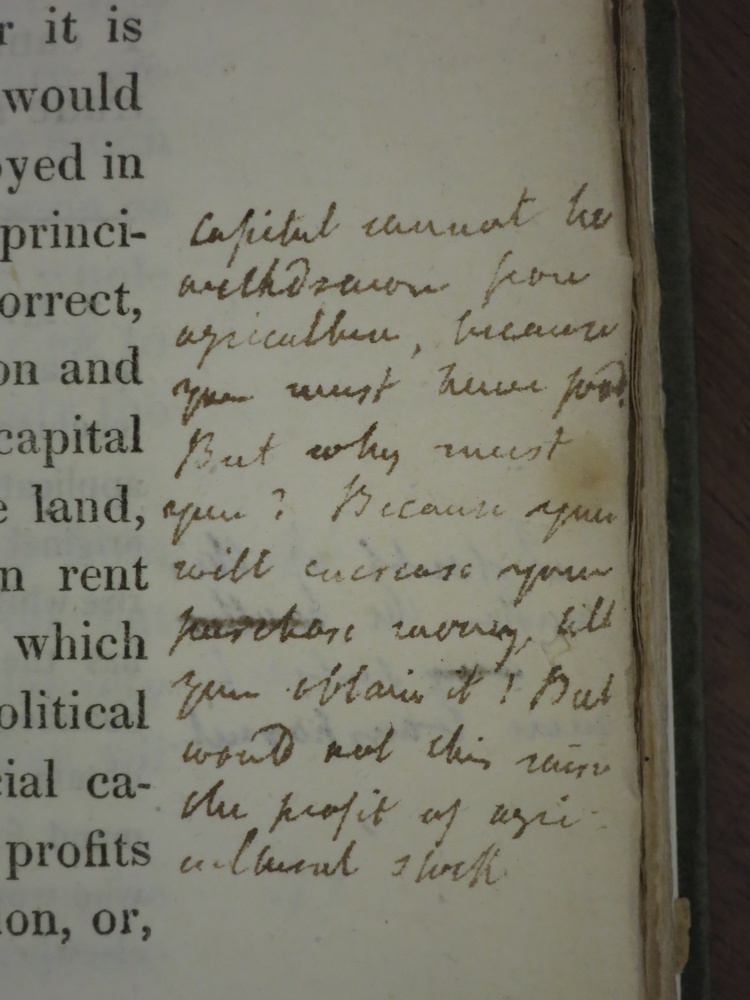 r it is
would
oyed in
princi-
orrect,
on and
capital
e land,
n rent
which
olitical
cial ca-
profits
ion, or,
Capital cannot be
withdrawn from
agriculture, because
you must have food.
But why must
you? Because you
will increase your
purchase money, till
you obtain it! But
would not this raise
the profit of agri-
cultural stock